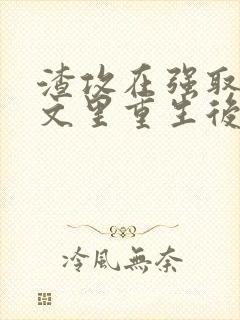 渣攻在强取
文里重生後
冷風無奈